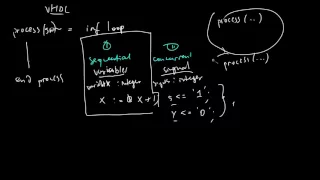 VHDL
process(...) = inf loop
end process
① sequential
variables
variable X : integer
X := X + 1
⑪ concurrent
signal
: integer
s <= '1' ;
Y <= '0' ;
process (...)
process (...)